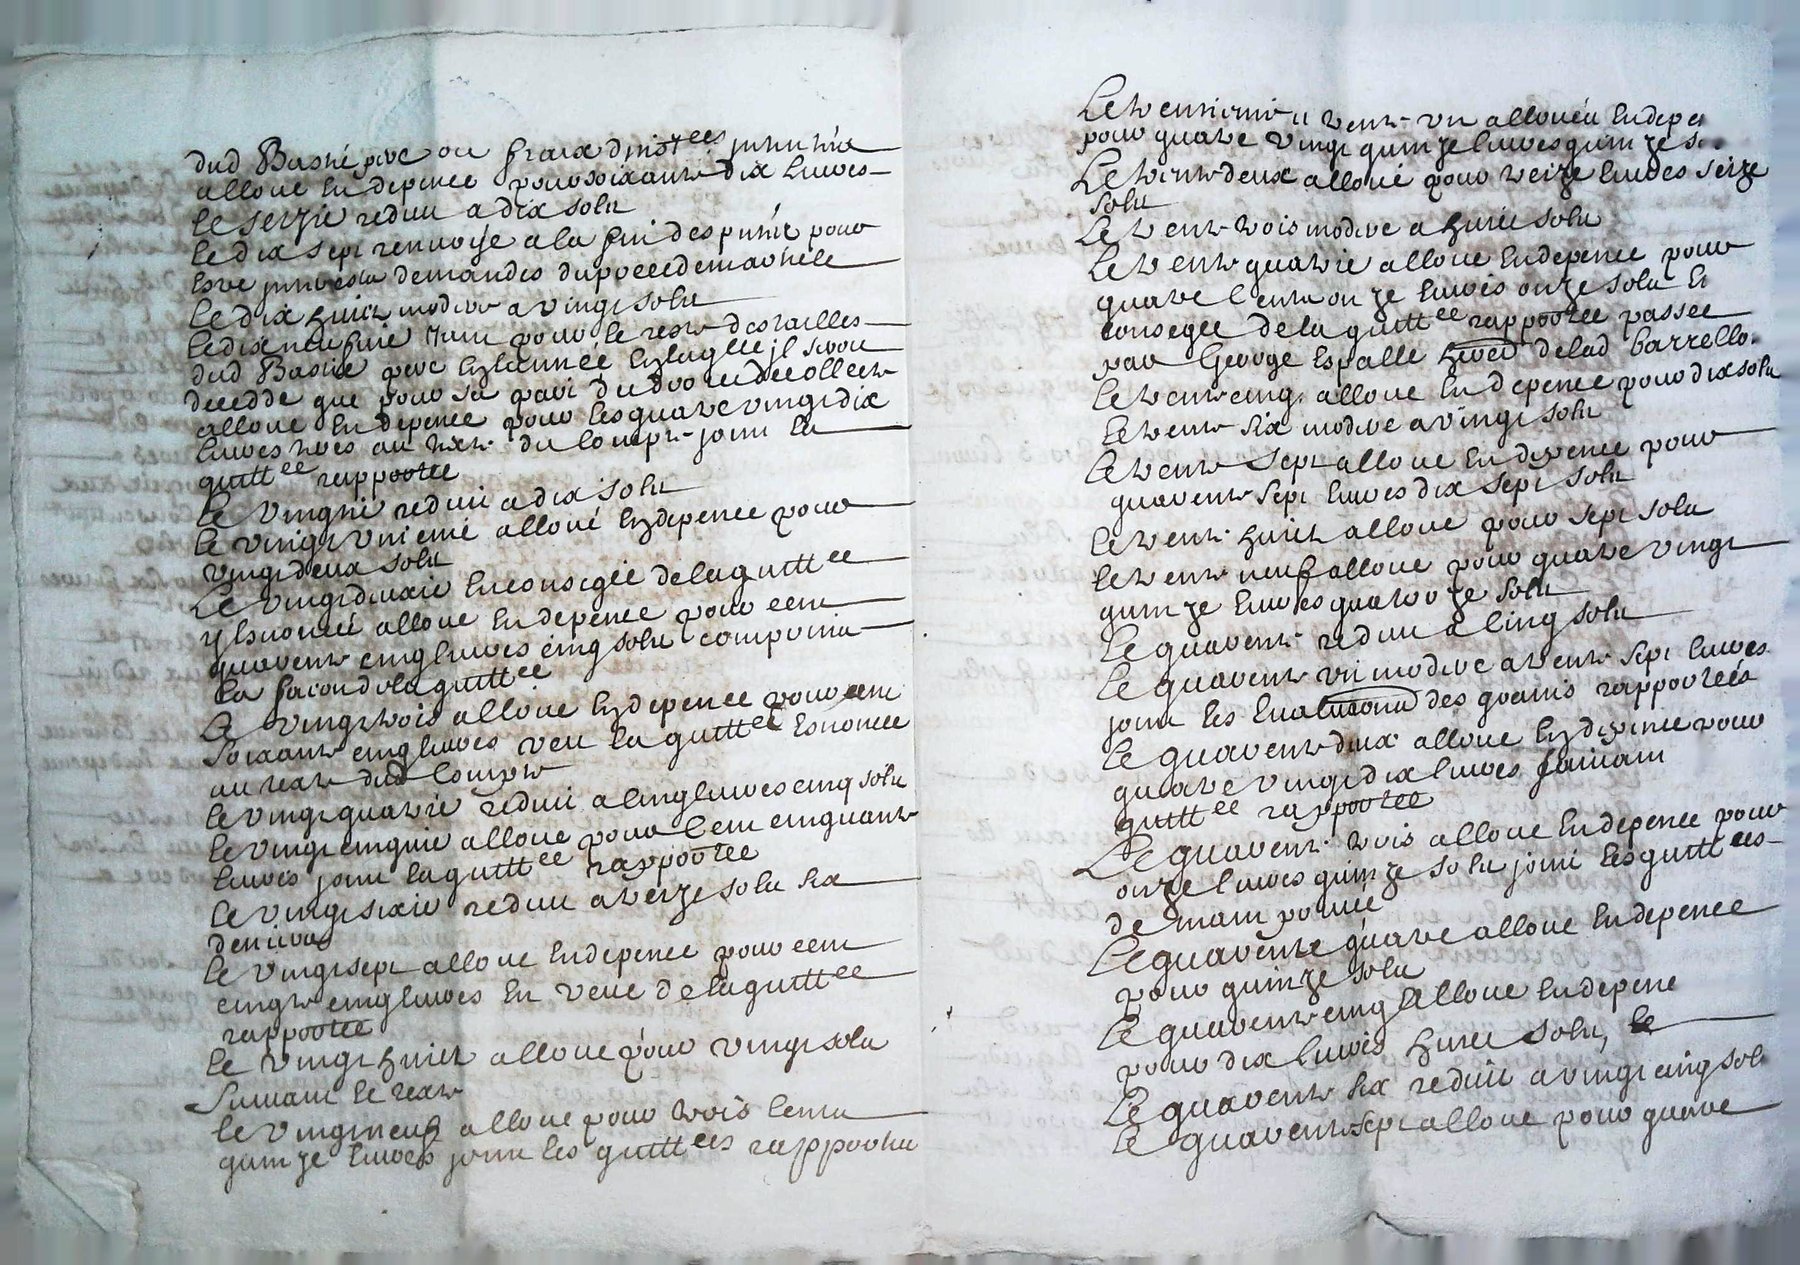 dud Bastié pere ou fraix dinstees
alloue En depence pour soixante dix Livres
Le sezie reduit a dix solz
Le dix sept renvoye a la fin des pour
Estre demandes du procede
Le dix huict modere a vingt solz
Le dix neufvie pour le reste des tailles
dud Bastié pere En l'année En laqlle il
que pour sa part du de collecte
alloue En depence pour les quatre vingt dix
Livres au texte du compte joint la
quittee rapportée
Le vingtie reduit a dix solz
Le vingt unieme alloué En depence pour
vingt deux solz
Le vingt deuxie En conseqce de la quittee
y Enoncee alloue En depence pour cent
quarente cinq livres cinq solz comprins
La facon de la quittee
Le vingt trois alloue En depence pour cent
soixante cinq livres veu la quittee Enoncee
au texte dud Compte
Le vingt quatrie reduit a Cinq livres cinq solz
Le vingt cinquie alloue pour Cent cinquante
Livres joint la quittee rapportée
Le vingt sixie reduit a treize solz six
deniers
Le vingt sept alloue En depence pour cent
cinqte cinq livres En veue de la quittee
rapportée
Le vingt huict alloue pour vingt solz
suivant le texte
Le vingt neuf alloue pour trois Cents
quinze livres joint les quittees rapportees
Le trente un allouéu En depe
pour quatre vingt quinze livres quinze so
Le trente deux alloué pour treize livres seize
solz
Le trente trois modere a huict solz
Le trente quatrie alloue En depence pour
quatre Cents onze livres onze solz En
conseqce de la quittee rapportée passee
par George Espalle de lad
Le trente cinq alloue En depence pour dix solz
Le trente six modere a vingt solz
Le trente sept alloue En depence pour
quarente sept livres dix sept solz
Le trente huict alloue pour sept solz
Le trente neuf alloue pour quatre vingt
quinze livres quatorze solz
Le quarente reduit a Cinq solz
Le quarente un modere a trente sept livres
joint les des grains rapportées
Le quarente deux alloue En depence pour
quatre vingt dix livres suivant
quittee rapportée
Le quarente trois alloue En depence pour
onze livres quinze solz joint les quittees
de main
Le quarente quatre alloue En depence
pour quinze solz
Le quarente cinq alloue En depence
pour dix livres huict solz, Le
Le quarente six reduit a vingt cinq sol
Le quarente sept alloue pour quatre